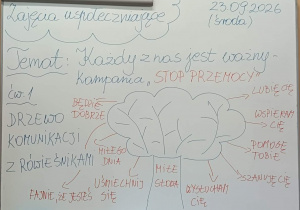 Zajęcia uspołeczniające
23.09.2026
(środa)
Temat: Każdy z nas jest ważny-
kampania „STOP PRZEMOCY”
ćw.1
DRZEWO
KOMUNIKACJI
Z RÓWIEŚNIKAMI
BĘDZIE
DOBRZE
MIŁEGO
DNIA
FAJNIE, ŻE JESTEŚ
UŚMIECHNIJ
SIĘ
MIŁE
SŁOWA
WYSŁUCHAM
CIĘ
SZANUJĘ CIĘ
POMOGĘ
TOBIE
WSPIERAM
CIĘ
LUBIĘ CIĘ